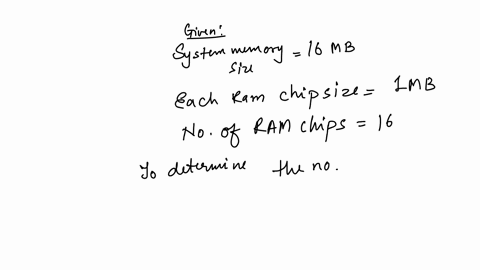 Given:
System memory size = 16 MB
Each Ram chipsize = 1MB
No. of RAM chips = 16
To determine the no.